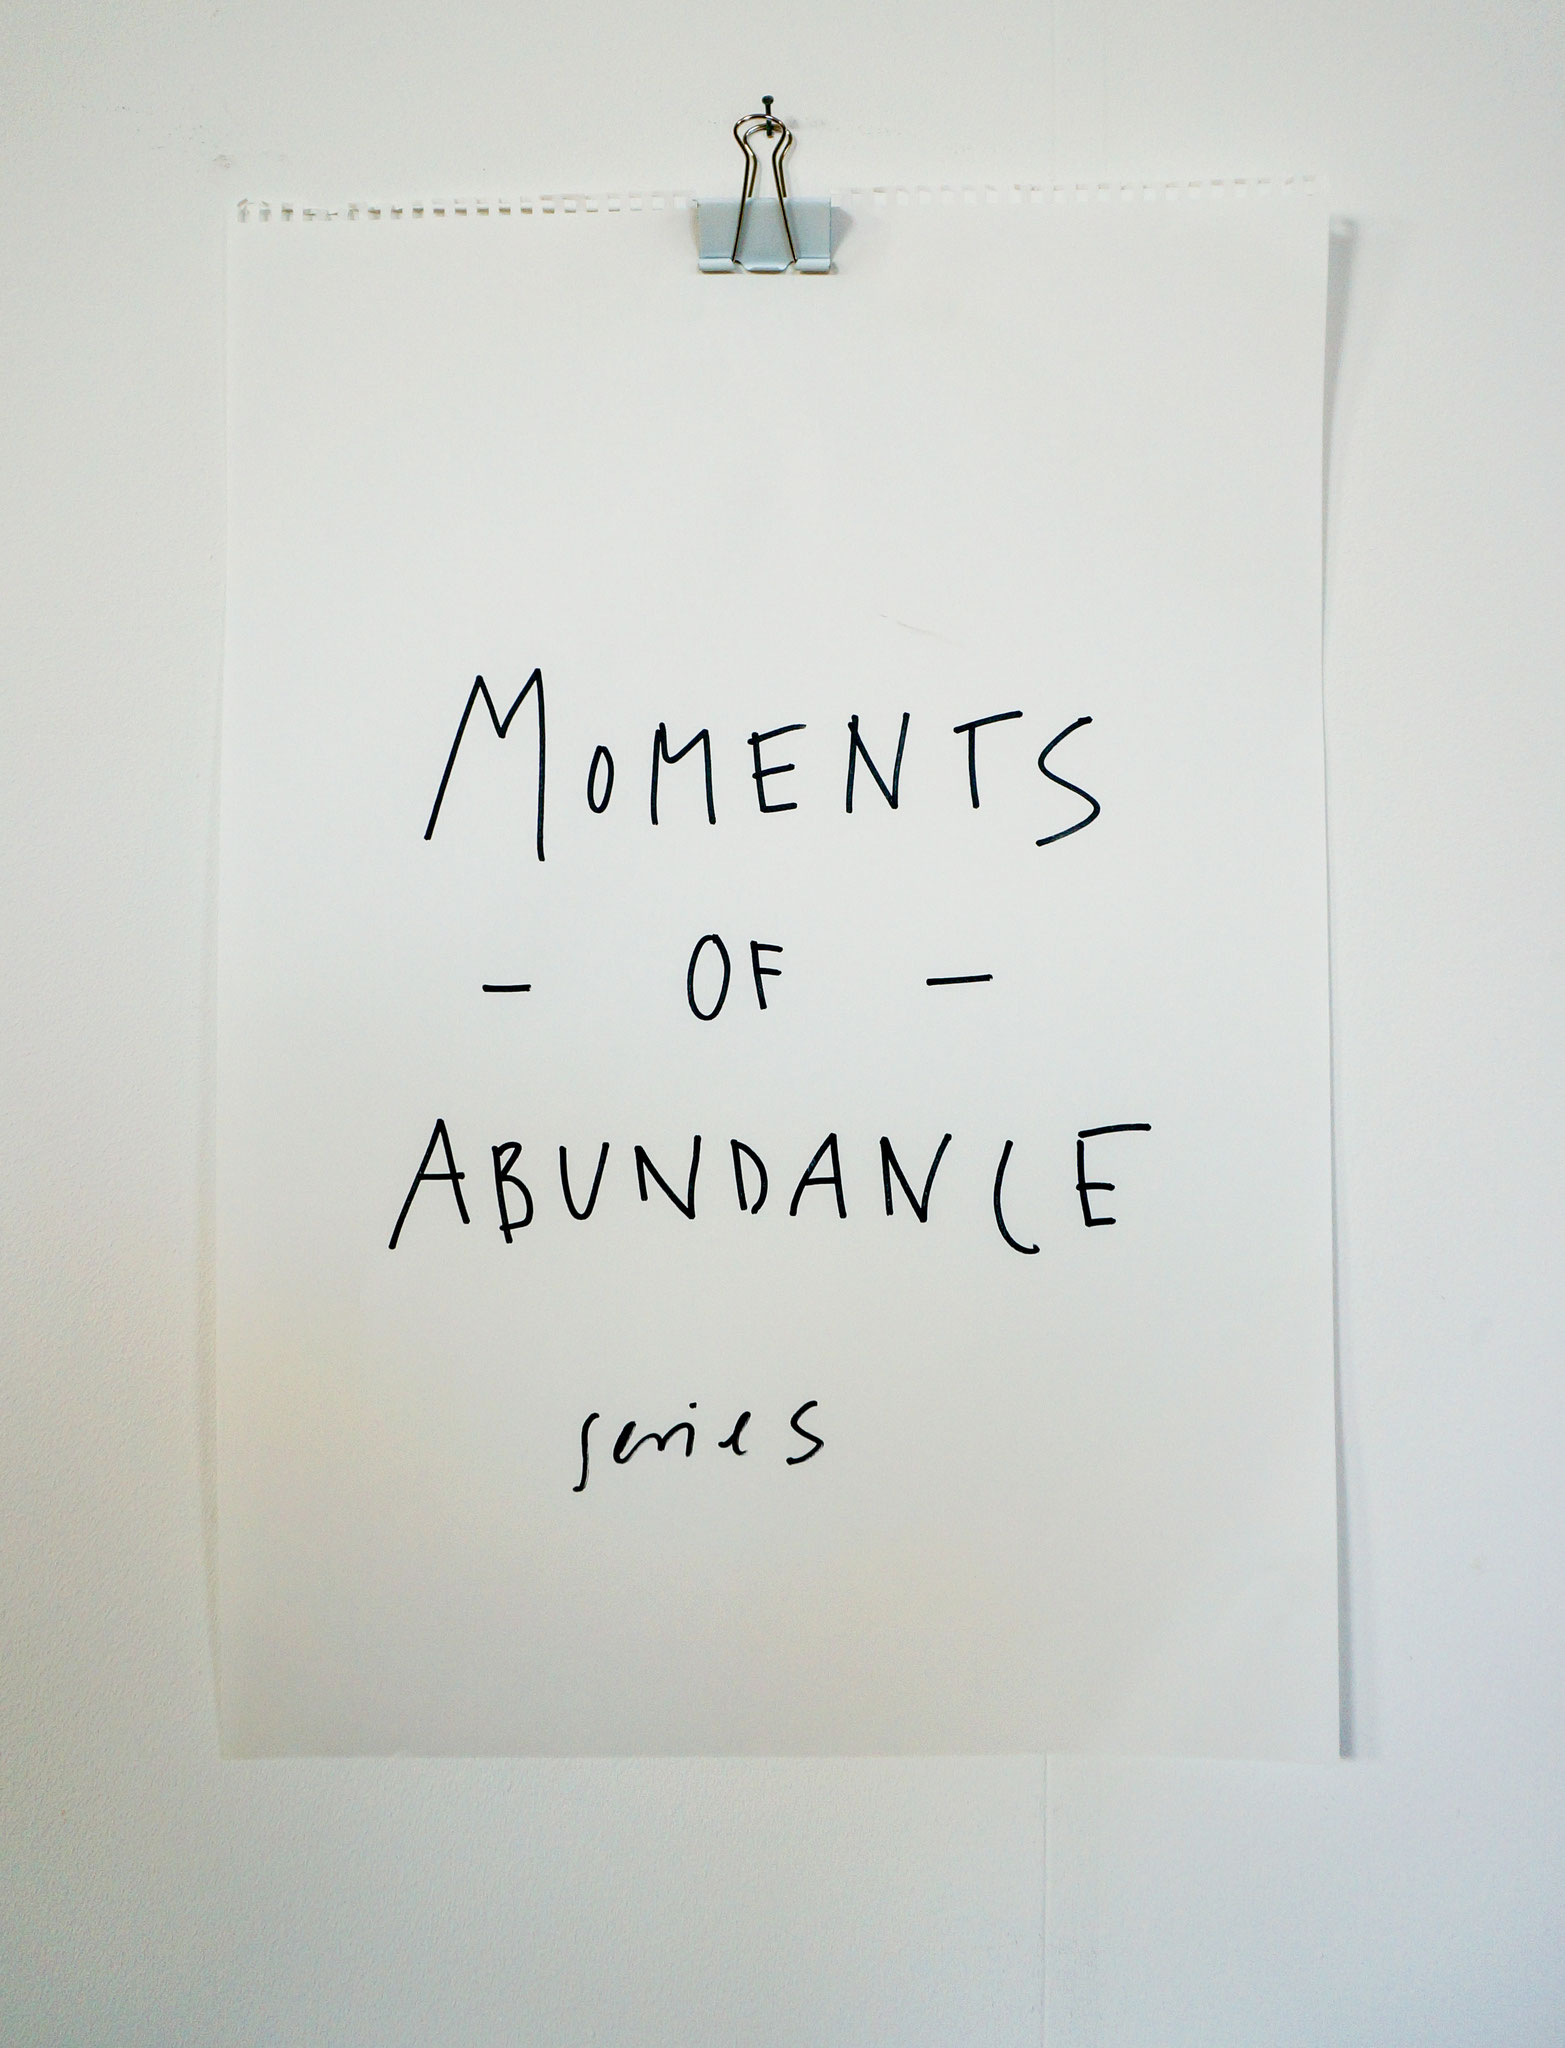 MOMENTS
- OF -
ABUNDANCE
series